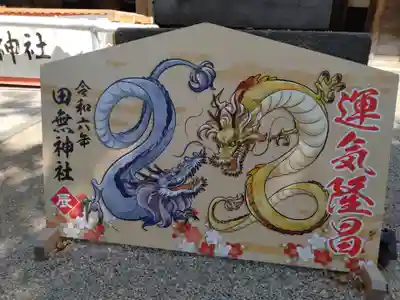 神社
運気隆昌
令和六年
田無神社
辰